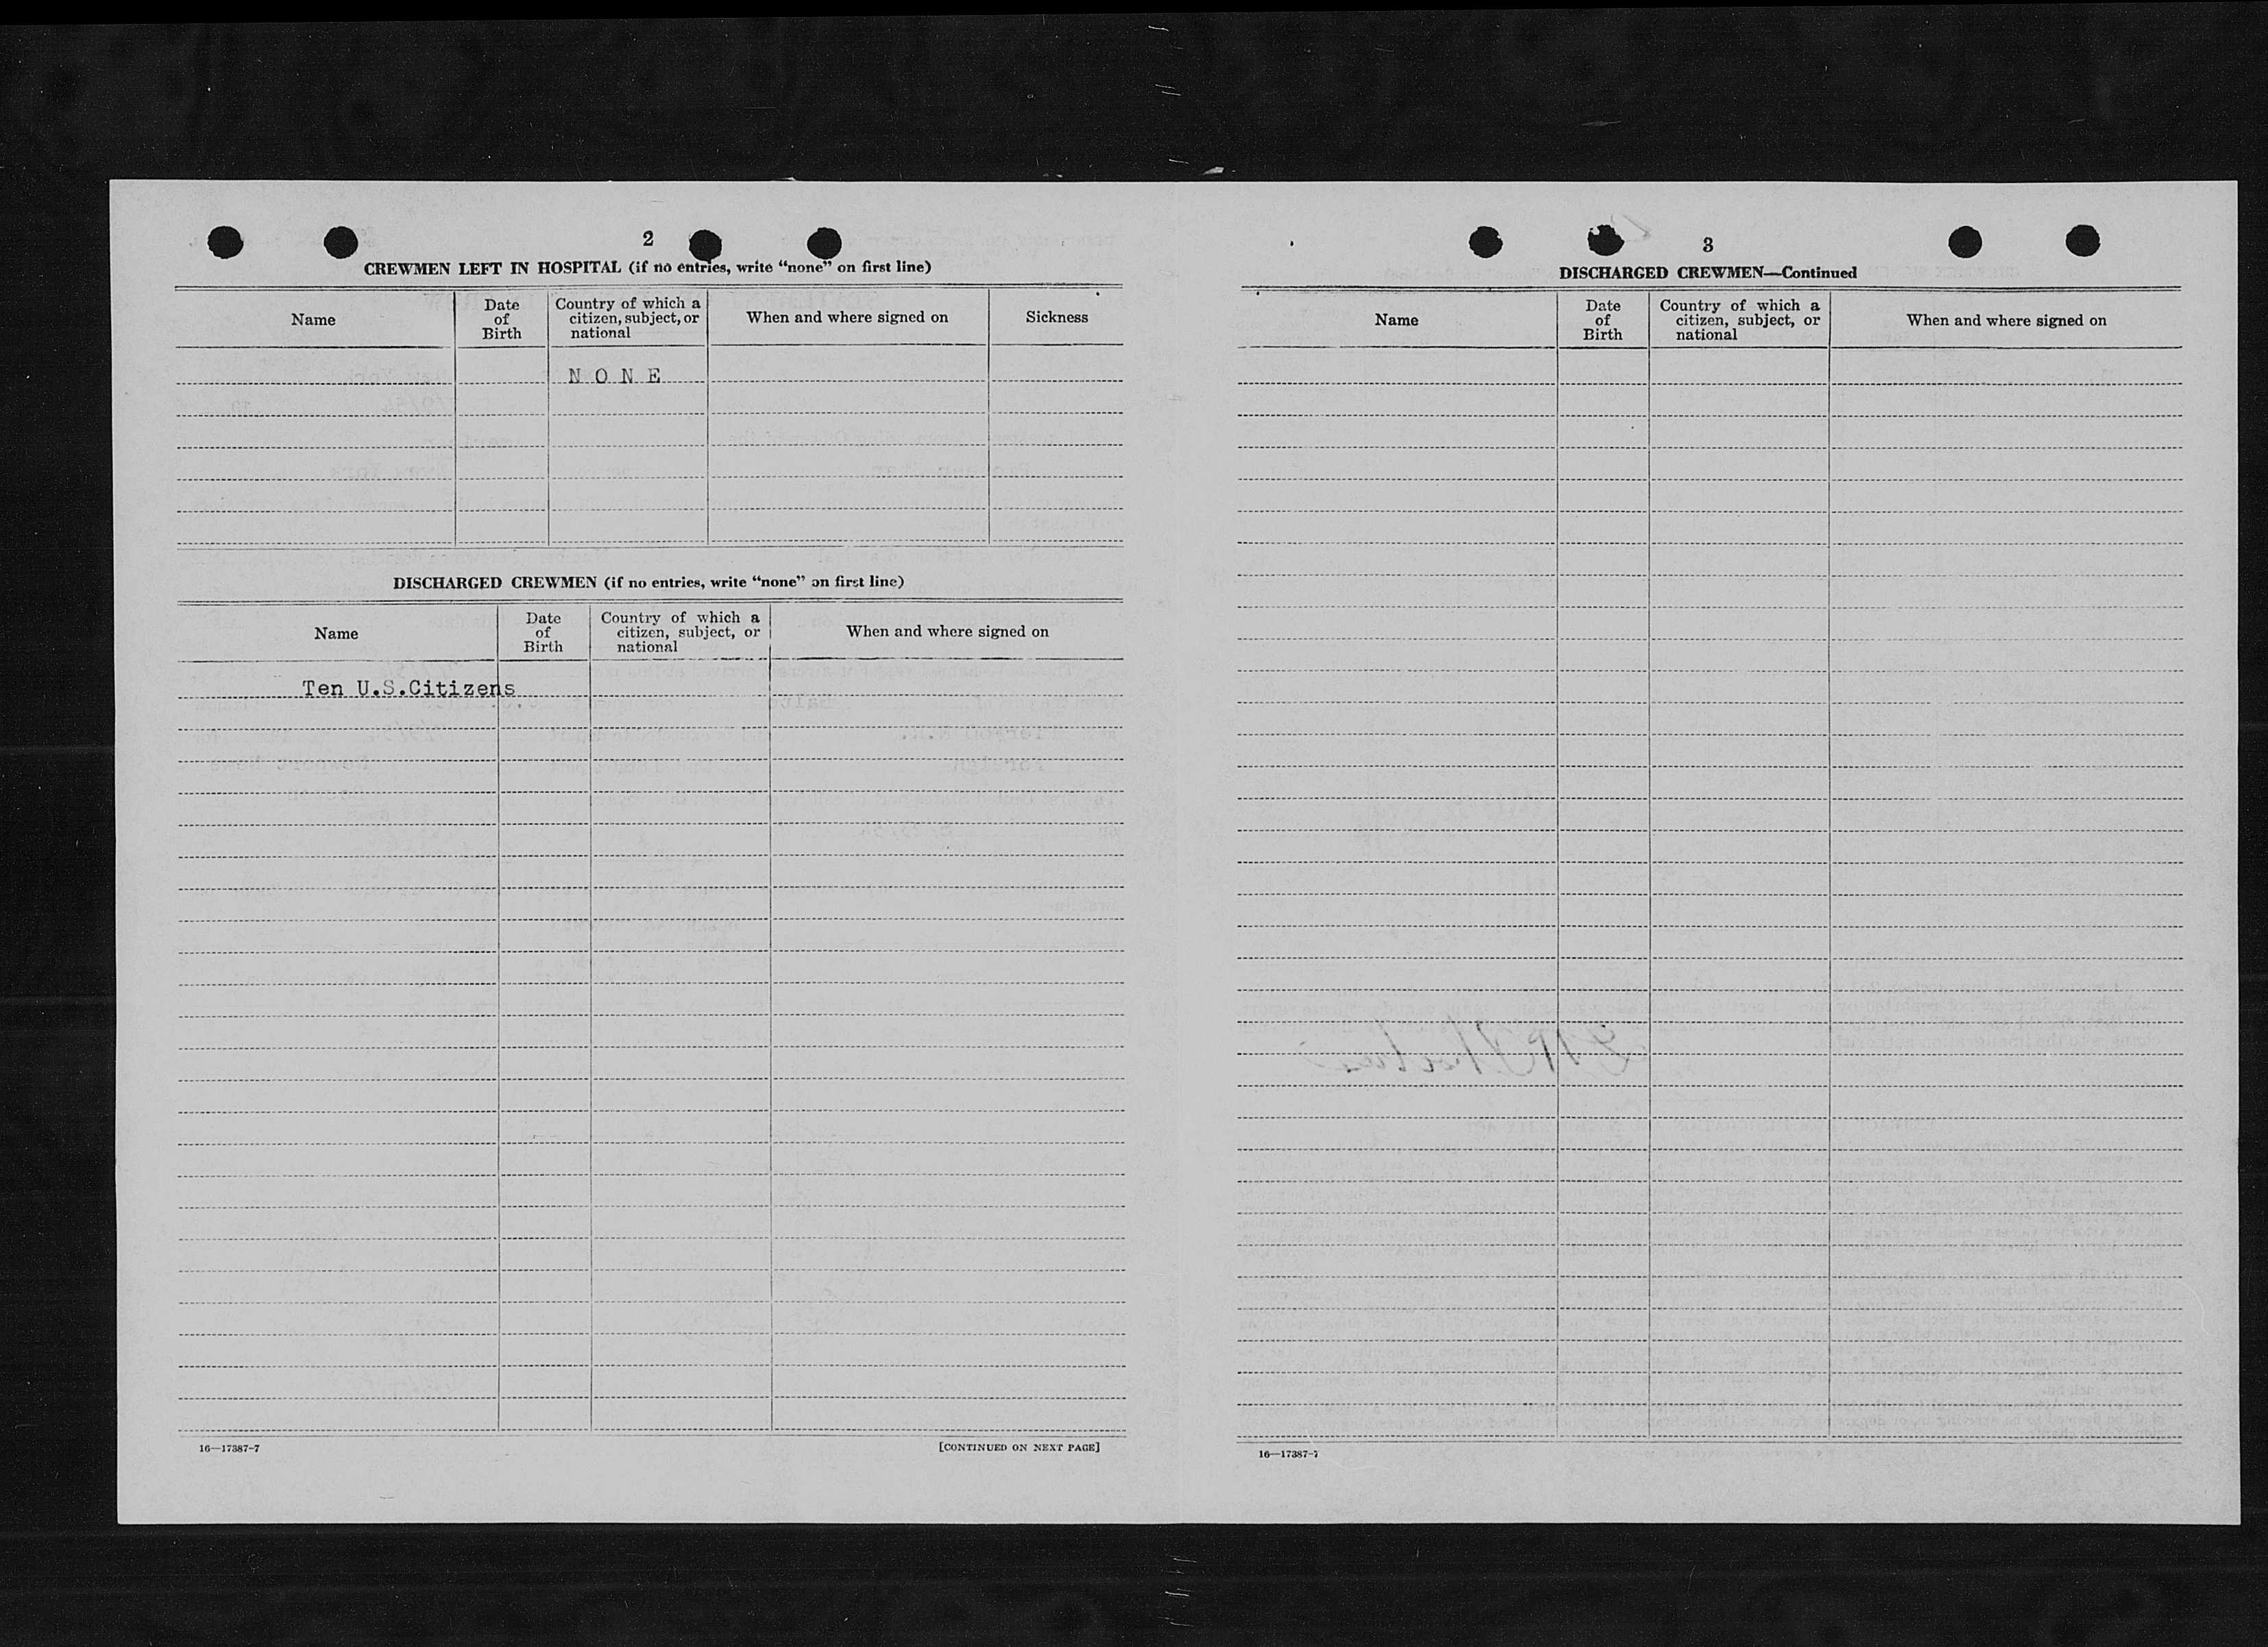 2
CREWMEN LEFT IN HOSPITAL (if no entries, write “none” on first line)
Name
Date of Birth
Country of which a citizen, subject, or national
When and where signed on
Sickness
N O N E
DISCHARGED CREWMEN (if no entries, write “none” on first line)
Name
Date of Birth
Country of which a citizen, subject, or national
When and where signed on
Ten U.S.Citizens
16—17387-7
[CONTINUED ON NEXT PAGE]
3
DISCHARGED CREWMEN—Continued
Name
Date of Birth
Country of which a citizen, subject, or national
When and where signed on
16—17387-7